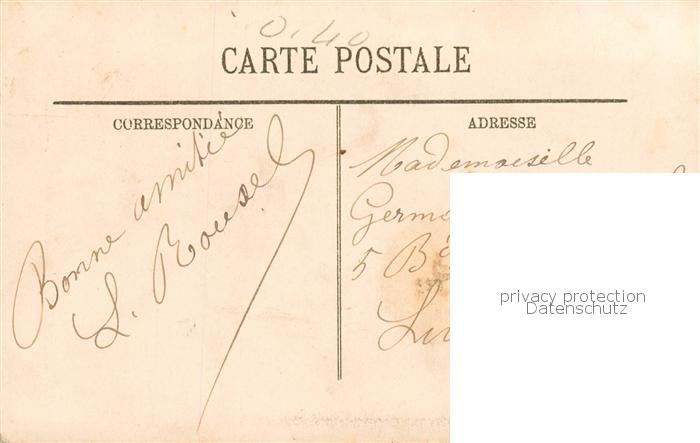 0.40
CARTE POSTALE
CORRESPONDANCE
Bonne amitié
L. Rousel
ADRESSE
Mademoiselle
5 B
privacy protection
Datenschutz